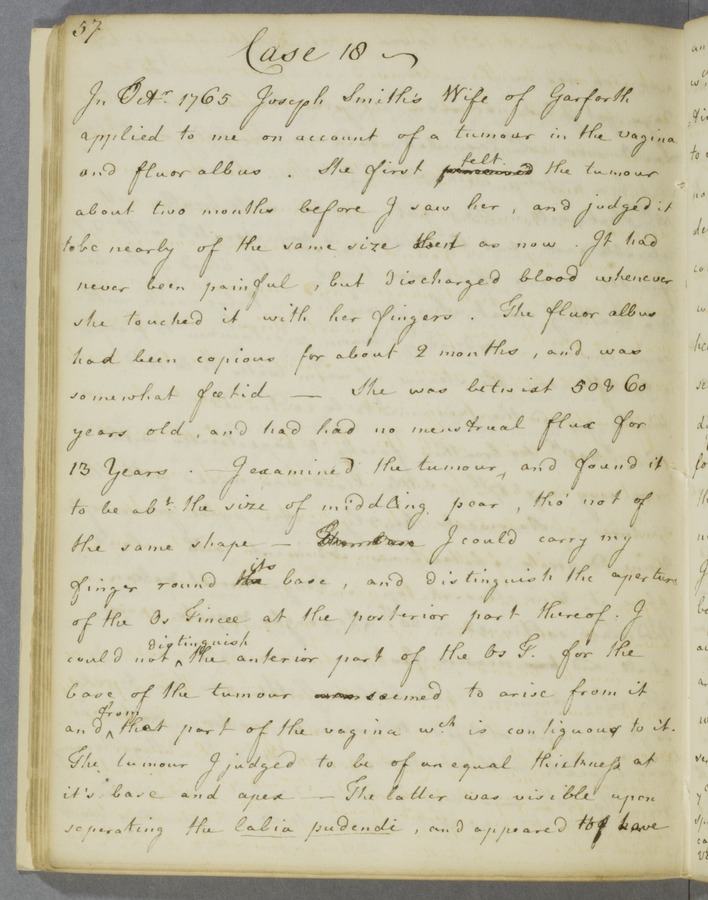 57
Case 18
In Octr. 1765 Joseph Smith's Wife of Garforth
applied to me on account of a tumour in the vagina
and fluor albus . She first felt the tumour
about two months before I saw her, and judged it
to be nearly of the same size as now . It had
never been painful , but discharged blood whenever
she touched it with her fingers . The fluor albus
had been copious for about 2 months , and was
somewhat fœtid — She was betwixt 50 & 60
years old , and had had no menstrual flux for
13 Years . — I examined the tumour , and found it
to be abt. the size of middling pear , tho' not of
the same shape — I could carry my
finger round its base , and distinguish the aperture
of the Os Tincee at the posterior part thereof . I
could not distinguish the anterior part of the Os T. for the
base of the tumour seemed to arise from it
and from that part of the vagina wch is contiguous to it .
The tumour I judged to be of an equal thickness at
it's base and apex — The latter was visible upon
seperating the labia pudendi , and appeared to have